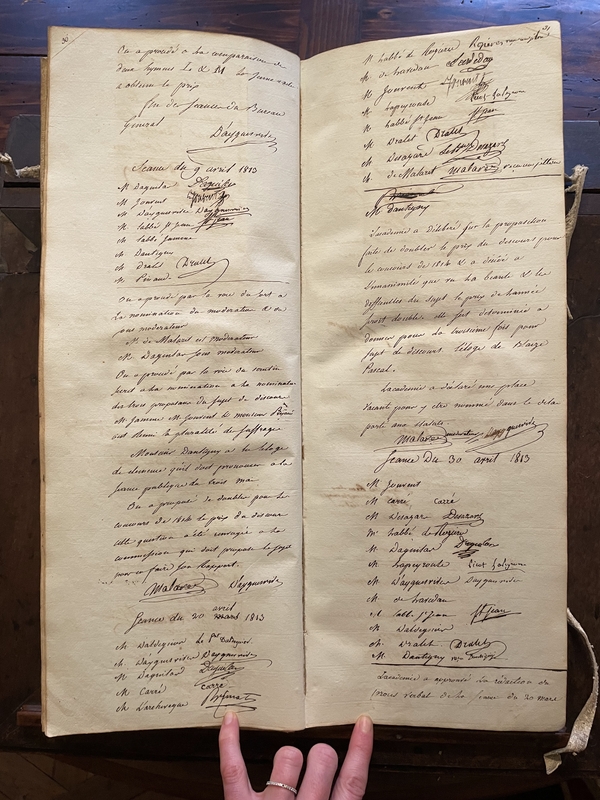 30
On a procédé a la comparaison de
deux hymnes L & M la seconde
a obtenu le prix
fin de seance du Bureau
General
Dayguesvives
Seance du 9 avril 1813
M Daguilar
M Jouvent
M Dayguesvives Dayguesvives
M labbé St jean St Jean
M labbé jamme
M Dantigny
M Dralet Dralet
M Pinaud
On a procédé par la voie du sort a
la nomination du moderateur & du
sous moderateur
M. de Malaret est moderateur
M Daguilar sous moderateur
On a procédé par la voie du scrutin
secret a la nomination a la nomination
des trois proposans du sujet de discours
M jamme M jouvent & monsieur Pinaud
ont réuni la pluralité de suffrage
Monsieur Dantigny a lu leloge
de clemence quil doit prononcer a la
seance publique du trois mai
On a proposé de doubler pour le
concours de 1814 le prix du discours
cette question a été renvoyée a la
commission qui doit proposer le sujet
pour en faire son Rapport.
Malaret Dayguesvives
Seance du 20 avril 1813
M Daldeguier
M Dayguesvives Dayguesvives
M Daguilar Daguilar
M Carré Carré
M Larcheveque
31
M labbé de Rozieres
M de lavedan Lavedan
M Jouvent Jouvent
M Lapeyrouse
M labbé St jean St Jean
M Dralet Dralet
M Desazars Desazars
M de Malaret Malaret
M Dantigny
Lacademie a déliberé sur la proposition
faite de doubler le prix du discours pour
le concours de 1814 & a décidé a
lunanimité que vu la beauté & les
difficultés du sujet le prix de lannée
seroit double elle sest determinée a
donner pour la troisieme fois pour
sujet de discours leloge de Blaize
Pascal.
Lacademie a déclaré une place
vacante pour y etre nommé dans le delai
porté aux statuts
Malaret moderateur Dayguesvives
Seance Du 30 avril 1813
M Jouvent
M Carré Carré
M Desazars Desazars
M labbé de Rozieres
M Daguilar Daguilar
M Lapeyrouse
M Dayguesvives Dayguesvives
M de lavedan
M labbé St jean St Jean
M Daldeguier
M. Dralet Dralet
M. Dantigny
Lacademie a approuvé la rédaction du
procès verbal de la seance du 20